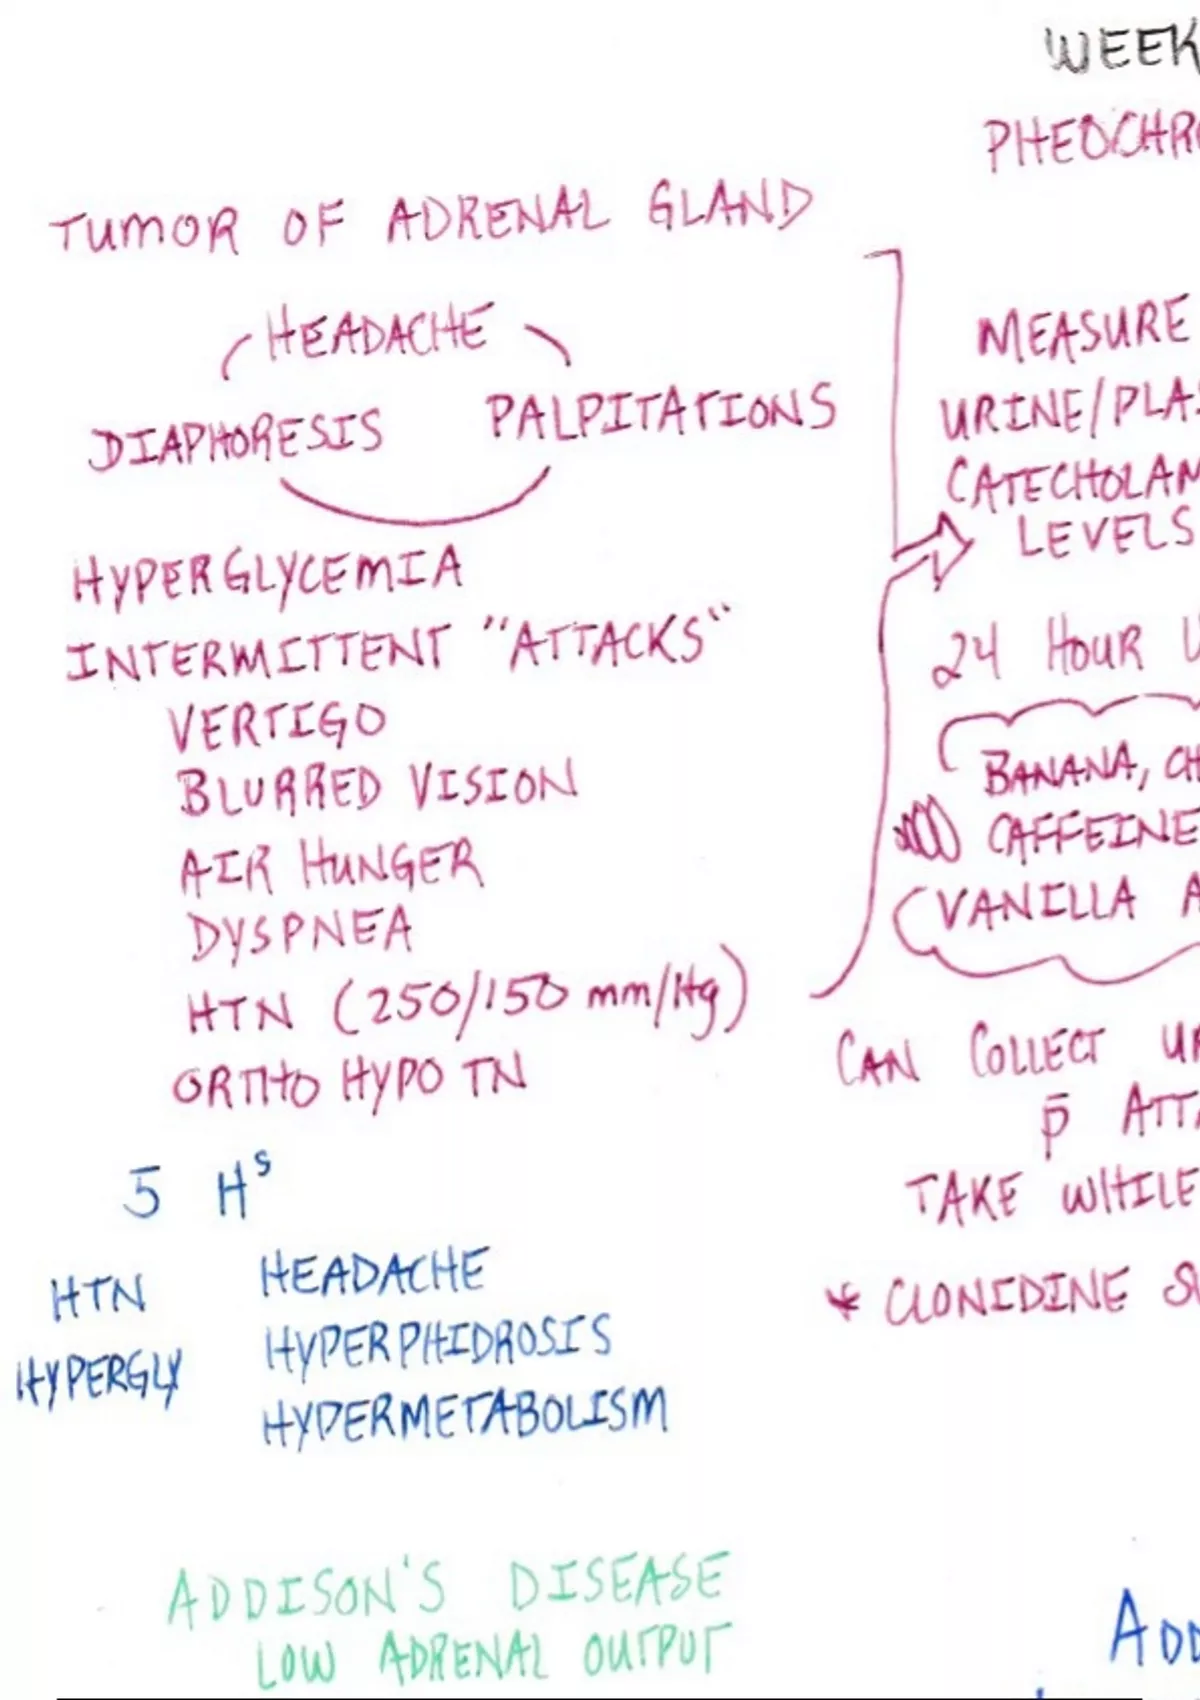 WEEK
PHEOCHR
TUMOR OF ADRENAL GLAND
HEADACHE
DIAPHORESIS PALPITATIONS
HYPERGLYCEMIA
INTERMITTENT "ATTACKS"
VERTIGO
BLURRED VISION
AIR HUNGER
DYSPNEA
HTN (250/150 mm/Hg)
ORTHO HYPO TN
MEASURE
URINE/PLAS
CATECHOLAM
LEVELS
24 HOUR U
BANANA, CH
CAFFEINE
VANILLA A
CAN COLLECT UR
p̄ ATTA
TAKE WHILE
* CLONIDINE SU
5 Hs
HTN HEADACHE
HYPERGLY HYPERPHIDROSIS
HYPERMETABOLISM
ADDISON'S DISEASE
LOW ADRENAL OUTPUT
ADD